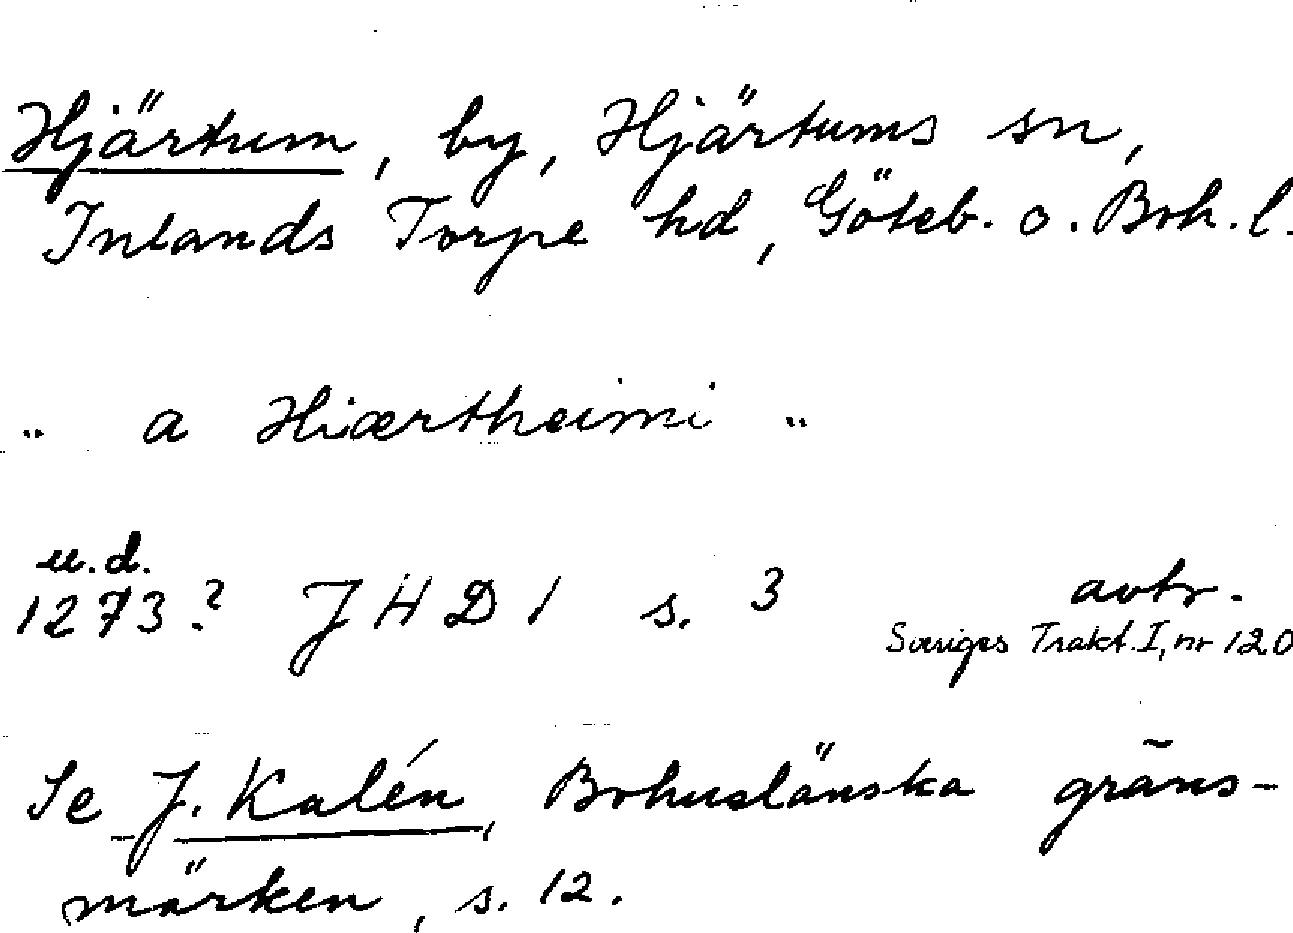 Hjärtum, by, Hjärtums sn,
Inlands Torpe hd, Göteb. o. Boh. l.
" a Hiærtheimi "
u.d.
1273? JHD 1 s. 3 avtr.
Sveriges Trakt. I, nr 120
Se J. Kalén, Bohuslänska gräns-
märken, s. 12.